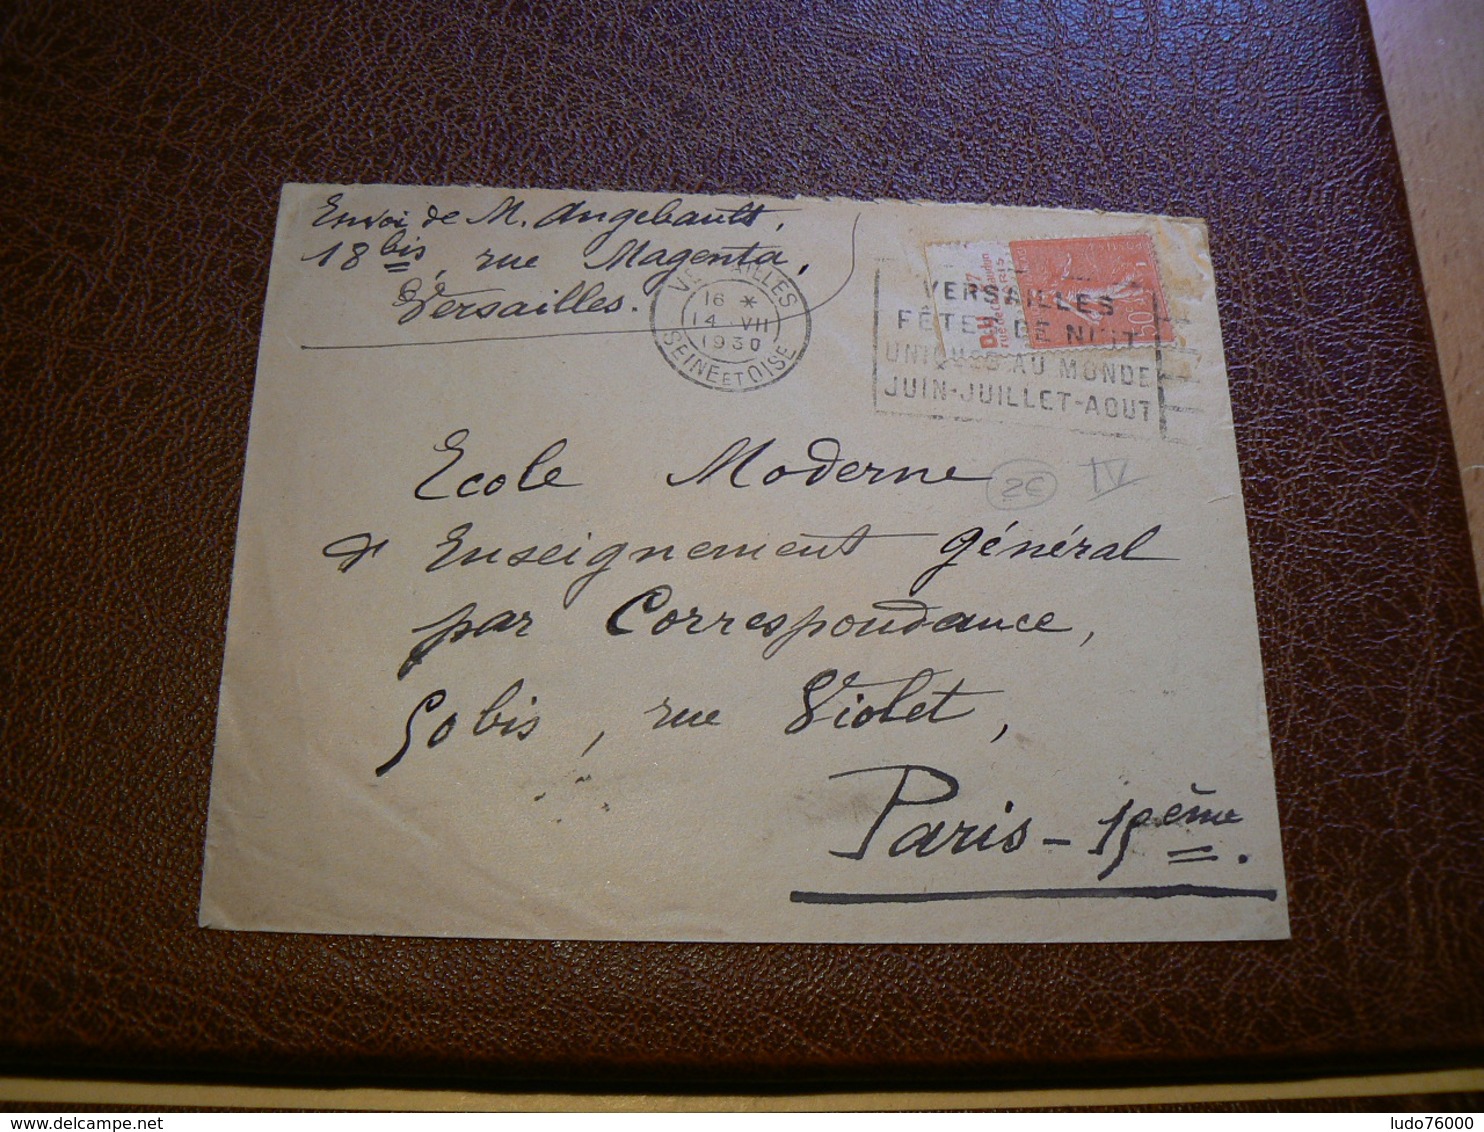 Envoi de M. Angebault,
18 bis, rue Magenta,
Versailles.
VERSAILLES
16 *
14 VII
1930
SEINE ET OISE
VERSAILLES
FÊTES DE NUIT
UNIQUES AU MONDE
JUIN-JUILLET-AOUT
50
Ecole Moderne
2€
IV
d'Enseignement Général
par Correspondance,
50 bis, rue Violet,
Paris - 15ème.
delcampe.net
ludo76000